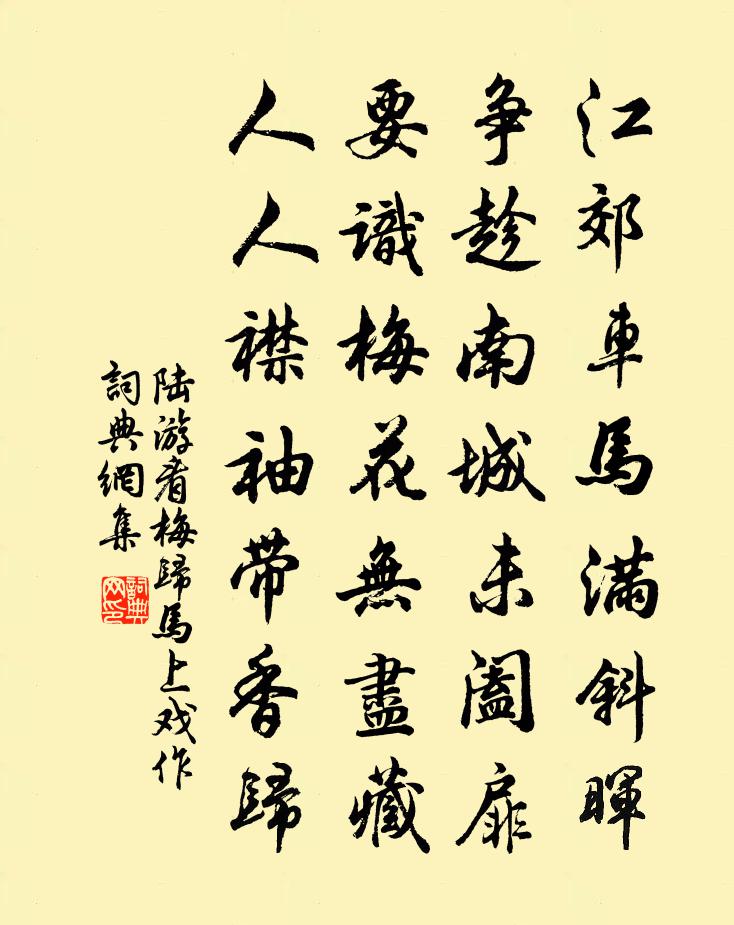 江郊車馬滿斜暉
爭趁南城未闔扉
要識梅花無盡藏
人人襟袖帶香歸
陆游看梅歸馬上戏作
詞典網集
詞典網印